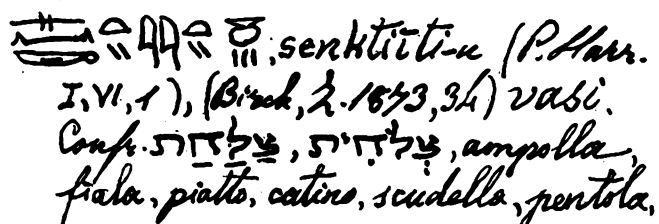 , senktiiti-u (P. Harr.
I, VI, 1), (Birch, Z. 1873, 34) vasi.
Confr. צַלַחַת, צְלֹחִית, ampolla,
fiala, piatto, catino, scudella, pentola,